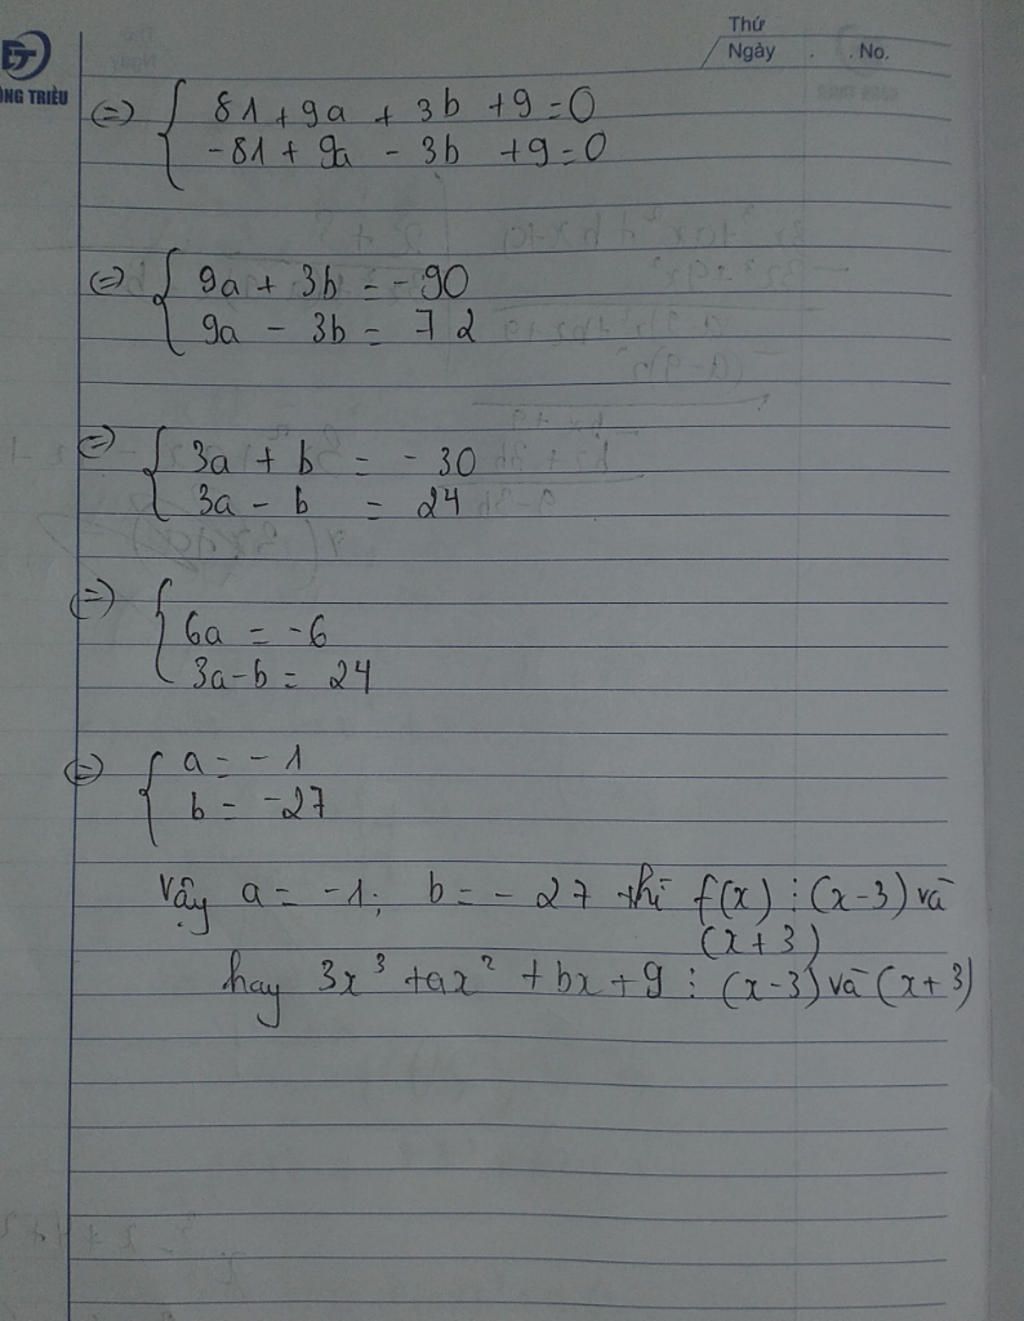 Thứ
Ngày . . No.
ĐT
ÔNG TRIỀU
(=) { 81 + 9a + 3b + 9 = 0
-81 + 9a - 3b + 9 = 0
(=) { 9a + 3b = -90
9a - 3b = 72
(=) { 3a + b = -30
3a - b = 24
(=) { 6a = -6
3a - b = 24
(=) { a = -1
b = -27
Vậy a = -1; b = -27 thì f(x) ⋮ (x-3) và
(x+3)
hay 3x³ + ax² + bx + 9 ⋮ (x-3) và (x+3)